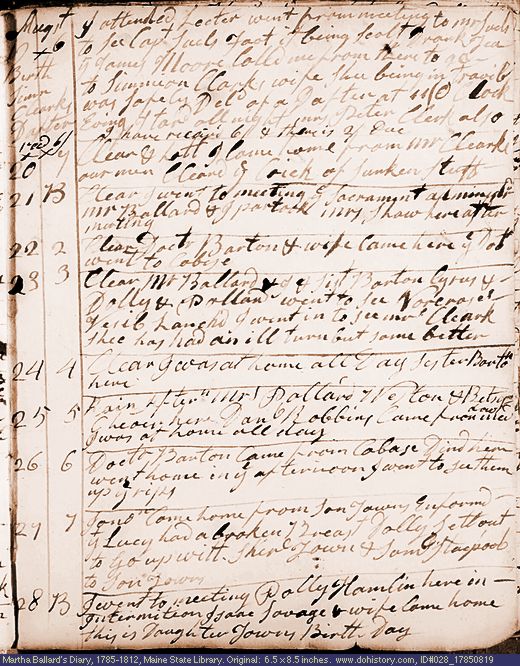 Augst y attended Lecter went from meeting to mr Suals
x 6 to see Capt Suals foot it being scolt
Birth James Moore Calld me from there to go
Simn to Simmeon Clarks wife shee being in Travil
Clarks was safely Deld of a Dafter at
Dafter Evng I tarri all night mrs Peter Clark also
recd 6/ I have receivd 6/ & there is 2/ Due
20 Clear & hott I Came home from Mr Clearks
our men Cleard ye Crick of sunken stuff
21 B Clear I went to meeting ye Sacrament administr
mr Ballard & I partook mrs Shaw here after
meeting
22 2 Clear Doctr Barton & wife Came here ye Doct
went to Cobese
23 3 Clear Mr Ballard & I & Sistr Barton Cyrus &
Dolly & Pollan went to see
Vesil Lanchd I went in to see mrs Cleark
shee has had an ill turn but some better
24 4 Clear I was at home all Day Sister Bartn
here
25 5 Rain aftern Mrs Pollard Weston & Betsy
here Dan Robbins Came from
I was at home all day
26 6 Doctr Barton Came from Cobese Dind here
went home in ye afternoon I went to see them
up
27 7 Jons Came home from Son Towns Enformd
yt Lucy had a broken Breast Dolly sett out
to go up with Town & Saml Stacpool
to Son Towns
28 B I went to meeting Polly Hamlin here in
intermition Isaac Savage & wife Came home
this is Daughter Towns Birth Day
Martha Ballard's Diary, 1785-1812, Maine State Library. Original: 6.5 x 8.5 inches. www.dohistory.com, ID#028_17850819